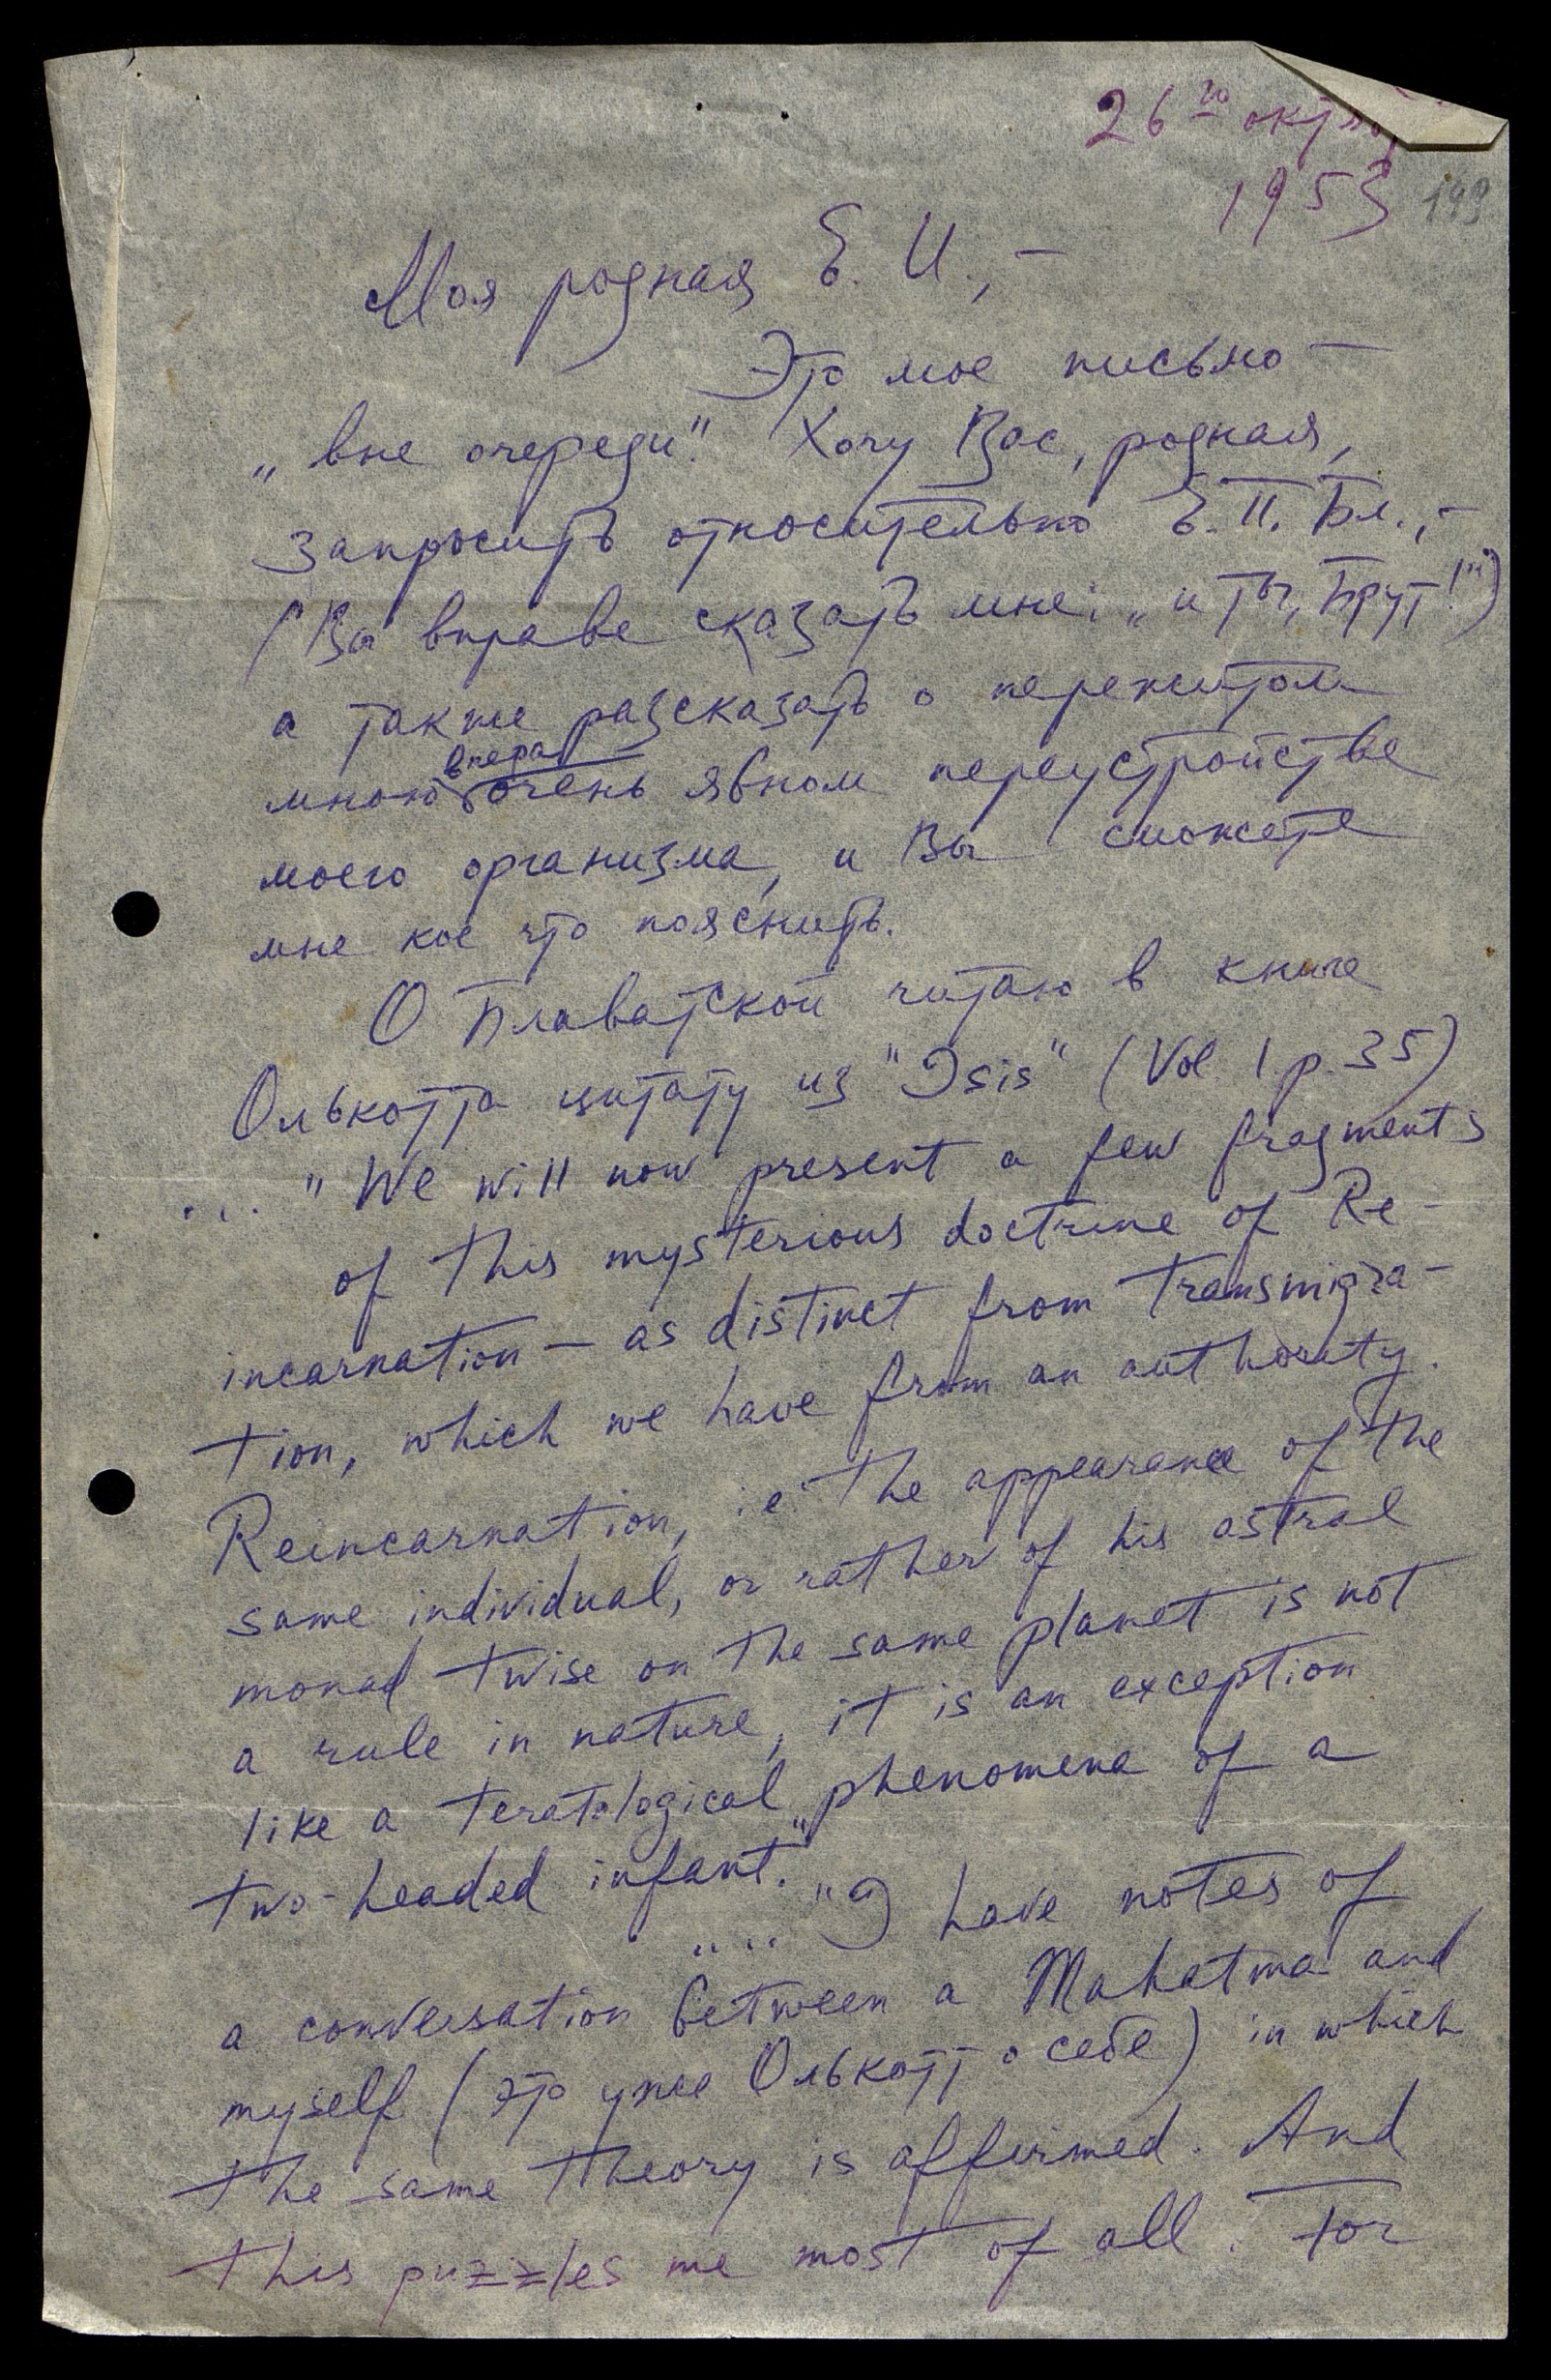 26го октяб
1953
193
Моя родная Е. И., —
Это мое письмо —
„вне очереди". Хочу Вас, родная,
запросить относительно Е. П. Бл., —
(Вы вправе сказать мне: „и ты, Брут!")
а также разсказать о пережитом
вчера
мною очень явном переустройстве
моего организма, и Вы сможете
мне кое что пояснить.
О Блаватской читаю в книге
Олькотта цитату из "Isis" (Vol. 1 p. 35)
... "We will now present a few fragments
of this mysterious doctrine of Re-
incarnation — as distinct from transmigra-
tion, which we have from an authority.
Reincarnation, i.e. the appearance of the
same individual, or rather of his astral
monad twise on the same planet is not
a rule in nature, it is an exception
like a teratological phenomena of a
two-headed infant."
.... "I have notes of
a conversation between a Mahatma and
myself (это уже Олькотт о себе) in which
the same theory is affirmed. And
this puzzles me most of all. For